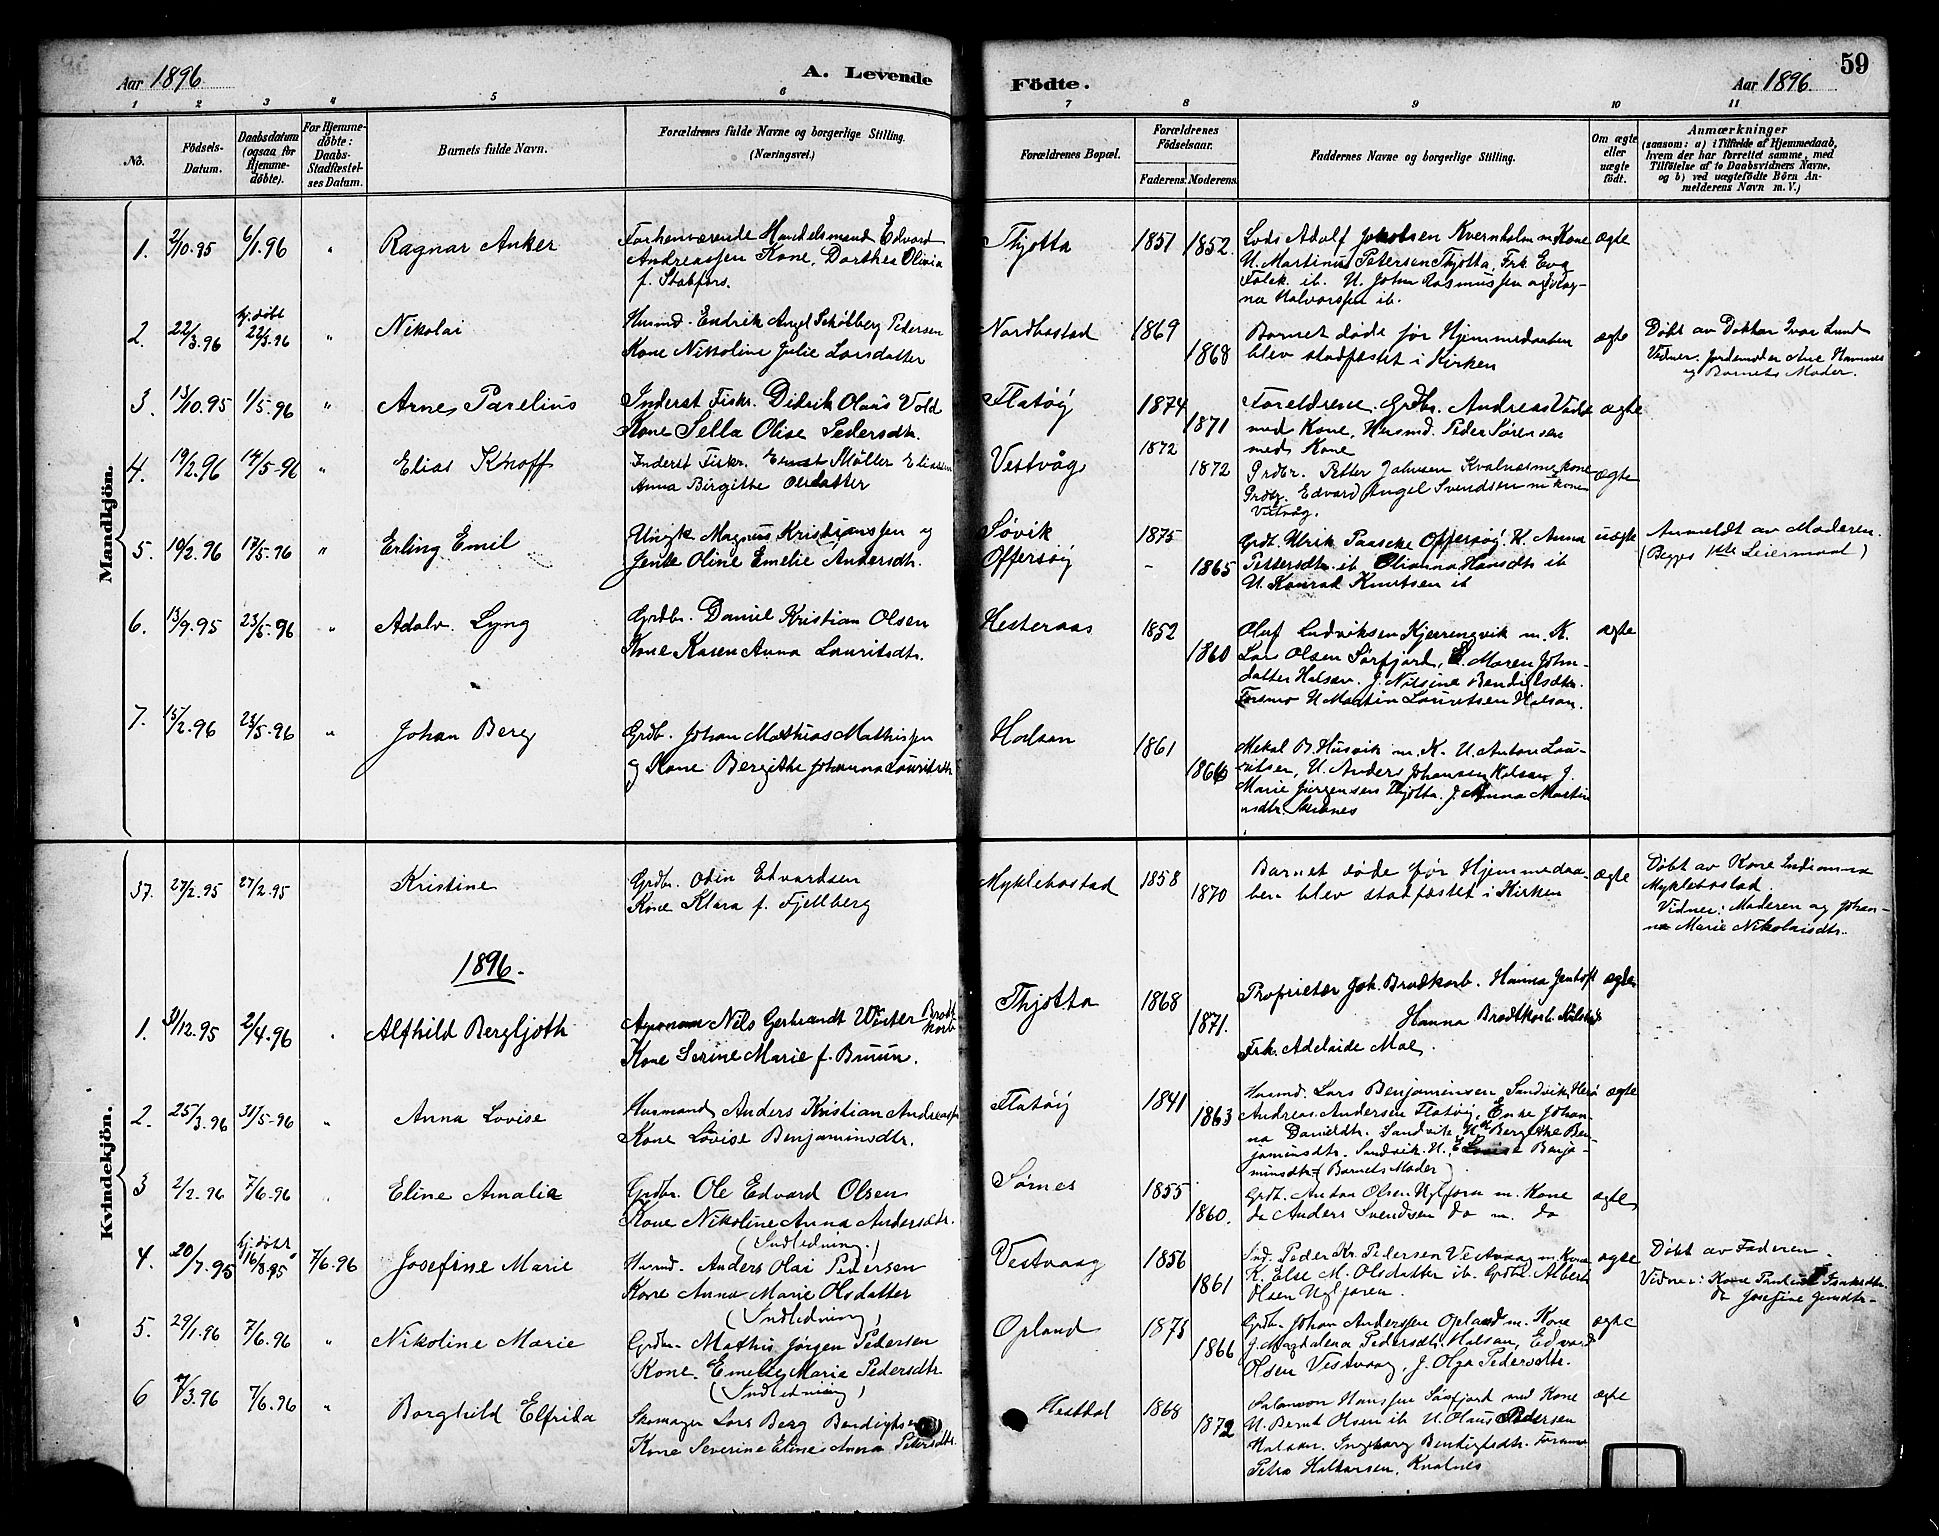 Aar 1896
A. Levende
Födte.
Aar 1896
59
1 2 3 4 5 6 7 8 9 10 11
No.
Födsels-Datum.
Daabsdatum (ogsaa for Hjemme-döbte).
For Hjemme-döbte: Daabs-Stadfæstel-ses Datum.
Barnets fulde Navn.
Forældrenes fulde Navne og borgerlige Stilling. (Næringsvei.)
Forældrenes Bopæl.
Forældrenes Födselsaar.
Faderens. Moderens.
Faddernes Navne og borgerlige Stilling.
Om ægte eller uægte födt.
Anmærkninger
(saasom: a) i Tilfælde af Hjemmedaab, hvem der har forrettet samme, med Tilföielse af to Daabsvidners Navne, og b) ved uægtefödte Börn An-melderens Navn m. V.)
Mandkjön.
1. 2/10.95 6/1.96 " Ragnar Anker
Forhenværende Handelsmand Edvard
Andreassen Kone, Dorthea Olivia
f. Stabfors.
Thjøtta 1851 1852.
Lods Adolf Jakobsen Kvernholm m Kone
U. Martinus Petersen Thjøtta, Frk. Eva
Falck ib. U. John Rasmussen og Mag-
na Halvorssen ib.
ægte
2. 22/3.96 hj. døbt 22/3.96 " Nikolai
Husmd. Endrik Angel Schølberg Pedersen
Kone Nikoline Julie Larsdatter
Nordbostad 1869 1868
Barnet døde før Hjemmedaaben
blev stadfæstet i Kirken
ægte
Døbt av Doktor Ivar Lund
Vidner. Jordemoder Ane Hamnes
og Barnets Moder.
3. 13/10.95 1/5.96 " Arne Parelius
Inderst Fiskr. Didrik Olaus Vold
Kone Sella Olise Pedersdtr.
Flatøy 1874 1871
Foreldrene. Grdbr. Andreas Vold
med Kone, Husmd. Peder Sørensen
med Kone
ægte
4. 19/2.96 14/5-96 " Elias Knoff
Inderst Fiskr. Ernst Møller Eliassen
Anna Birgitte Olsdatter
Vestvåg 1872 1872
Grdbr. Petter Johnsen Kvalnes m kone
Grdbr. Edvard Angel Svendsen m kone
Vestvåg.
ægte
5. 10/2.96 17/5.96 " Erling Emil
Ungk. Magnus Kristianssen og
Jente Oline Emelie Andersdtr.
Søvik 1875
Offersøy - 1865
Grdb. Ulrik Paascke Offersøy. K. Anna
Pettersdtr. ib Olianna Hansdtr ib
U. Konrad Knutsen ib
uægte
Anmeldt av Moderen.
(Begges 1ste Leiermaal)
6. 13/9.95 23/5.96 " Adolv. Lyng
Grdbr. Daniel Kristian Olsen
Kone Karen Anna Lauritsdtr.
Hesteraas 1852 1860
Oluf Ludviksen Kjerringvik m. K.
Lars Olsen Sørfjord, E. Maren John-
datter Halsan. J. Nilsine Bendigtsdtr.
Forsmo U. Martin Lauritsen Halsan.
ægte
7. 15/2.96 23/5.96 " Johan Berg
Grdb. Johan Mathias Mathissen
og Kone Bergithe Johanna Lauritsdtr
Halsan 1861 1866
Mekal B. Husvik m. K. U. Anton Lau-
ritsen, U. Anders Johansen Halsan J.
Marie Jürgensen Thjøtta. J. Anna Martin
usdtr.
Kvindekjön.
37. 27/2.95 27/2.95 Kristine
Grdbr. Odin Edvardsen
Kone Klara f. Fjellberg
Myklebostad 1858 1870
Barnet døde før Hjemmedaa-
ben blev stadfæstet i Kirken
ægte
Døbt av Kone Indianna
Myklebostad.
Vidner: Moderen og Johan-
na Marie Nikolaisdtr.
1896.
1. 31/12.95 2/4.96 Alfhild Bergljoth
Agronom Nils Gerbrandt Winter Brodt
korb
Kone Serine Marie f. Bruun.
Thjøtta 1868 1871.
Proprietær Joh. Brodtkorb. Hanna Jentoft
Hanna Brodtkorb
Frk. Adelaide Moe.
ægte
2. 25/3.96 31/5-96 " Anna Lovise
Husmand Anders Kristian Andreassen
Kone Lovise Benjaminsdtr.
Flatøy 1841 1863
Husmd. Lars Benjaminsen, Sandvik Herø
Andreas Andersen Flatøy, Enke Johan-
na Danieldtr. Sandvik, Bergithe Ben-
jaminsdtr. Sandvik. Lovise Benja-
minsdtr (Barnets Moder)
ægte
3 2/2.96 7/6.96 Eline Amalie
Grdbr. Ole Edvard Olsen
Kone Nikoline Anna Andersdtr.
(Indledning.)
Sørnes 1855 1860.
Grdb. Anton Olsen Uglfjorn m. Kone
do Anders Svendsen do m. do
ægte
4. 20/7.95 hj. døbt 16/8.95 7/6.96 Josefine Marie
Husmd. Anders Olai Petersen
Kone Anna Marie Olsdatter
(Indledning)
Vestvaag 1856 1861
Ind. Peder Kr. Petersen Vestvaag m. Kone
K. Else M. Olsdatter ib. Grdbr. Albert
Olsen Uglfjoren.
ægte
Døbt av Faderen.
Vidner: Kone
do Josefine
5. 29/1.96 7/6.96 " Nikoline Marie
Grdbr. Mathis Jørgen Pedersen
Kone. Emelie Marie Pedersdtr
(Indledning)
Opland 1875 1866
Grdb. Johan Anderssen Opland m. Kone
J. Magdalena Pedersdtr. Halsan, Edvard
Olsen Vestvaag, J. Olga Pedersdtr.
ægte
6 7/3.96 7/6.96 " Borghild Elfrida
Skomager Lars Berg Bendigtsen
Kone Severine Eline Anna Petersdtr.
Hestdal 1868 1872
Salamon Hanssen Sørfjord med Kone
U. Bernt Olsen ib U. Olaus Pedersen
Halsan. Ingeborg Bendigtsdtr. Forsmo
Petra Halvorsen, Kvalnes
ægte